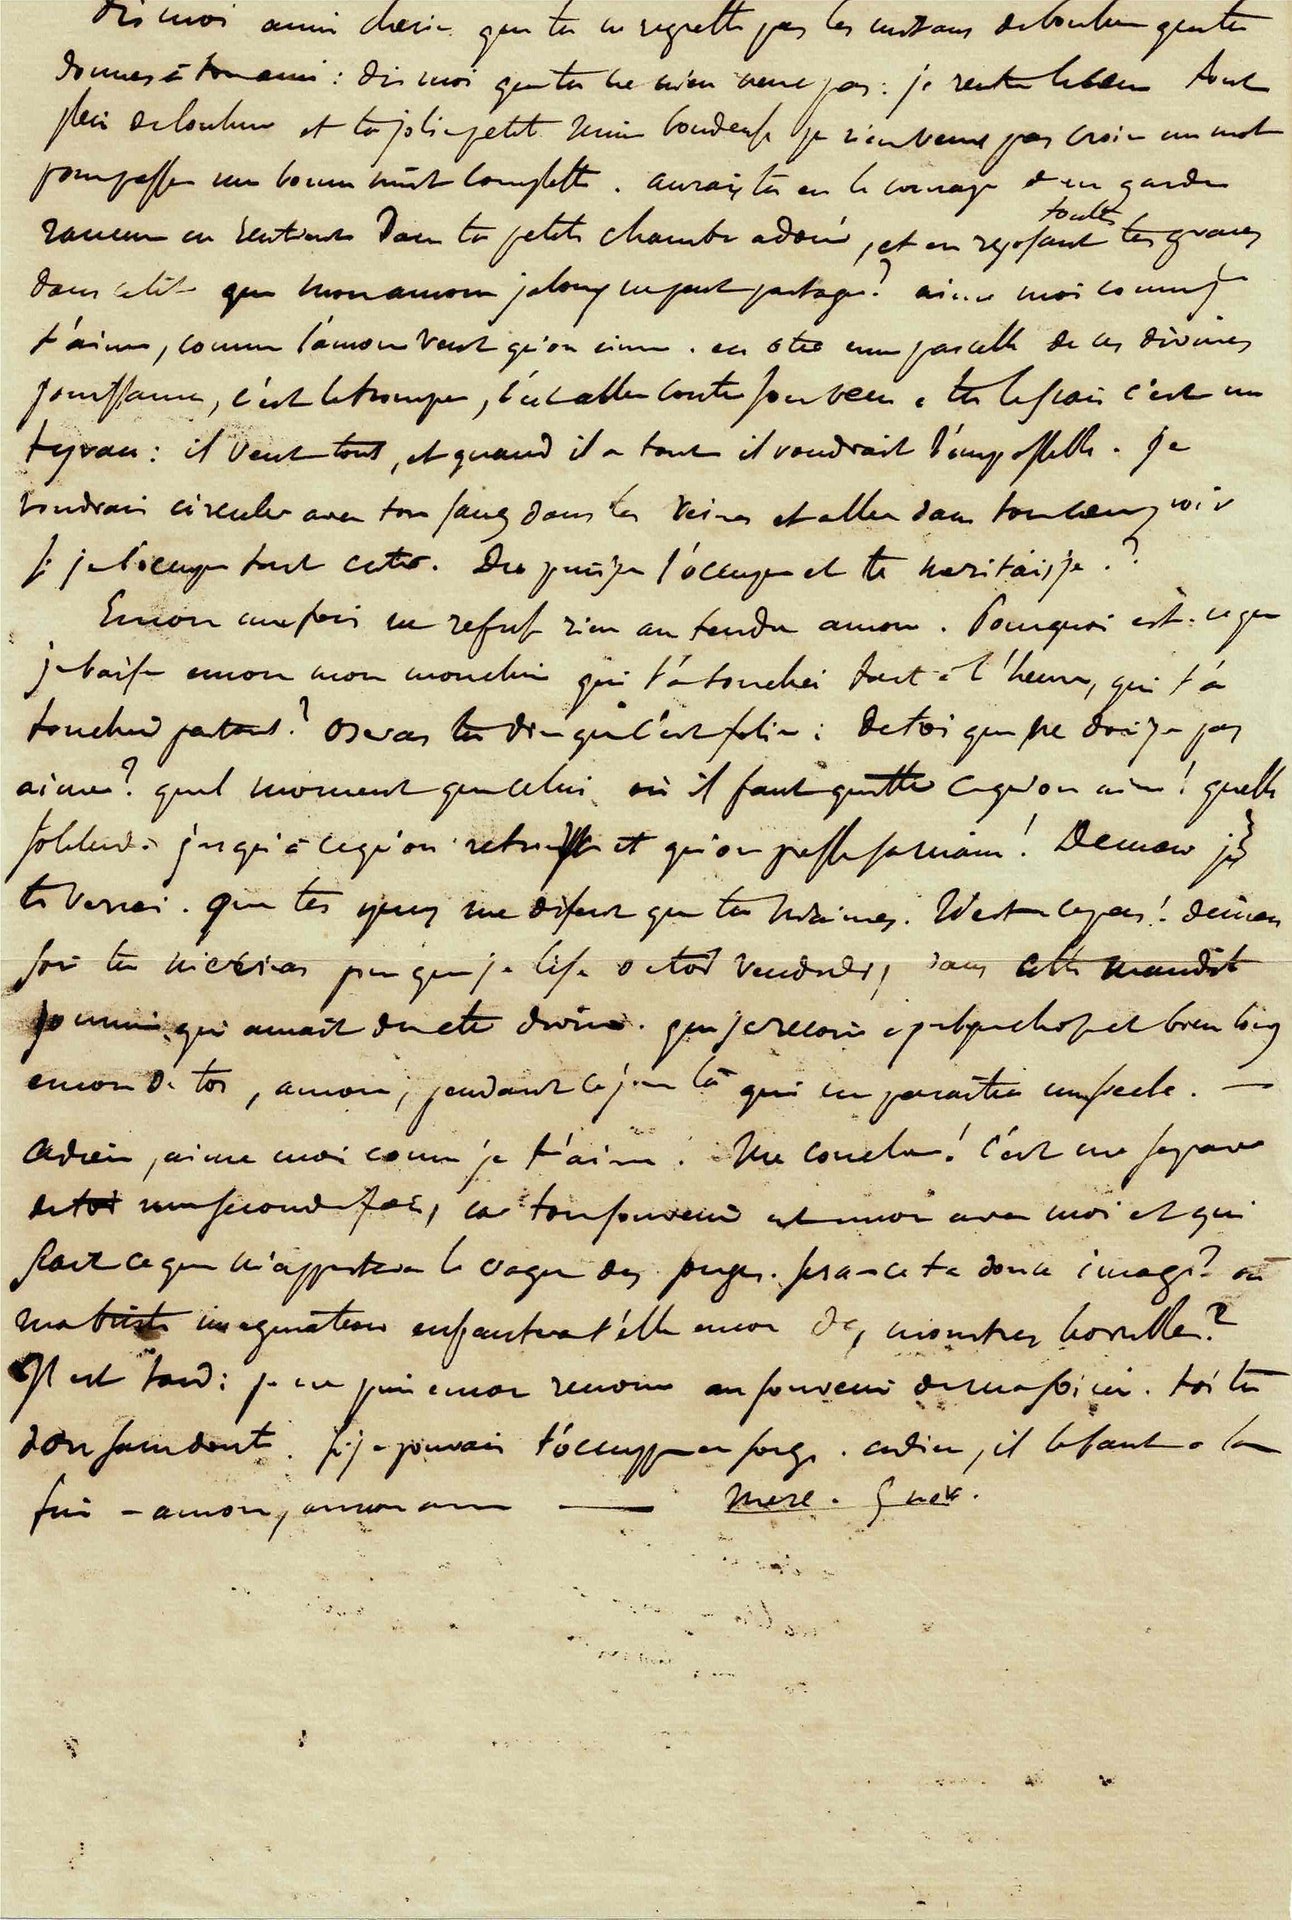 dis moi amie chérie que tu ne regrette pas les instans de bonheur que tu
donnes à ton ami : dis moi que tu ne m'en veux pas : je rentre le cœur tout
plein de bonheur et ta jolie petite mine boudeuse je n'en veux pas croire un mot
pour passer une bonne nuit complette . aurais tu eu le courage d'en garder
rancune en rentrant dans ta petite chambre adorée , et en reposant toutes tes graces
dans ce lit que mon amour jalouse ne peut partager ? aime moi comme je
t'aime , comme l'amour veut qu'on aime . en oter une parcelle de ces divines
jouissances , c'est le tromper , c'est aller contre son vœu . tu le sais c'est un
tyran : il veut tout , et quand il a tout il voudrait l'impossible . je
voudrais circuler avec ton sang dans tes veines et aller dans ton cœur voir
si je l'occupe tout entier . Du puisje l'occuper et te meritaisje . ?
Encore une fois ne refuse rien au tendre amour . Pourquoi est-ce que
je baise encore mon mouchoir qui t'a touchée tout à l'heure , qui t'a
touchée partout ? Oseras tu dire que c'est folie : de toi que ne doisje pas
aimer ? quel moment que celui où il faut quitter ce qu'on aime ! quelle
solitude jusqu'à ce qu'on retrouve et qu'on presse sa main ! Demain je
te verrai . que tes yeux me disent que tu m'aimes . N'est-ce pas ! demain
soir tu m'écriras pour que je lise de toi vendredi , dans cette maudite
journée qui aurait du etre divine . que je recoive quelque chose et bien long
encore de toi , amour , pendant ce jour là qui me paraitra un siecle . —
adieu , aime moi comme je t'aime . Me coucher ! c'est me separer
de toi une seconde fois , car ton souvenir est encore avec moi et qui
sait ce que m'apportera le vague des songes . sera-ce ta douce image ? ou
ma triste imagination enfantera t'elle encore des monstres horribles ?
Il est tard : je ne puis encore renoncer au souvenir de ma soirée . toi tu
dors sans doute . si je pouvais t'occuper en songe . adieu , il le faut a la
fin - amour , amour am —